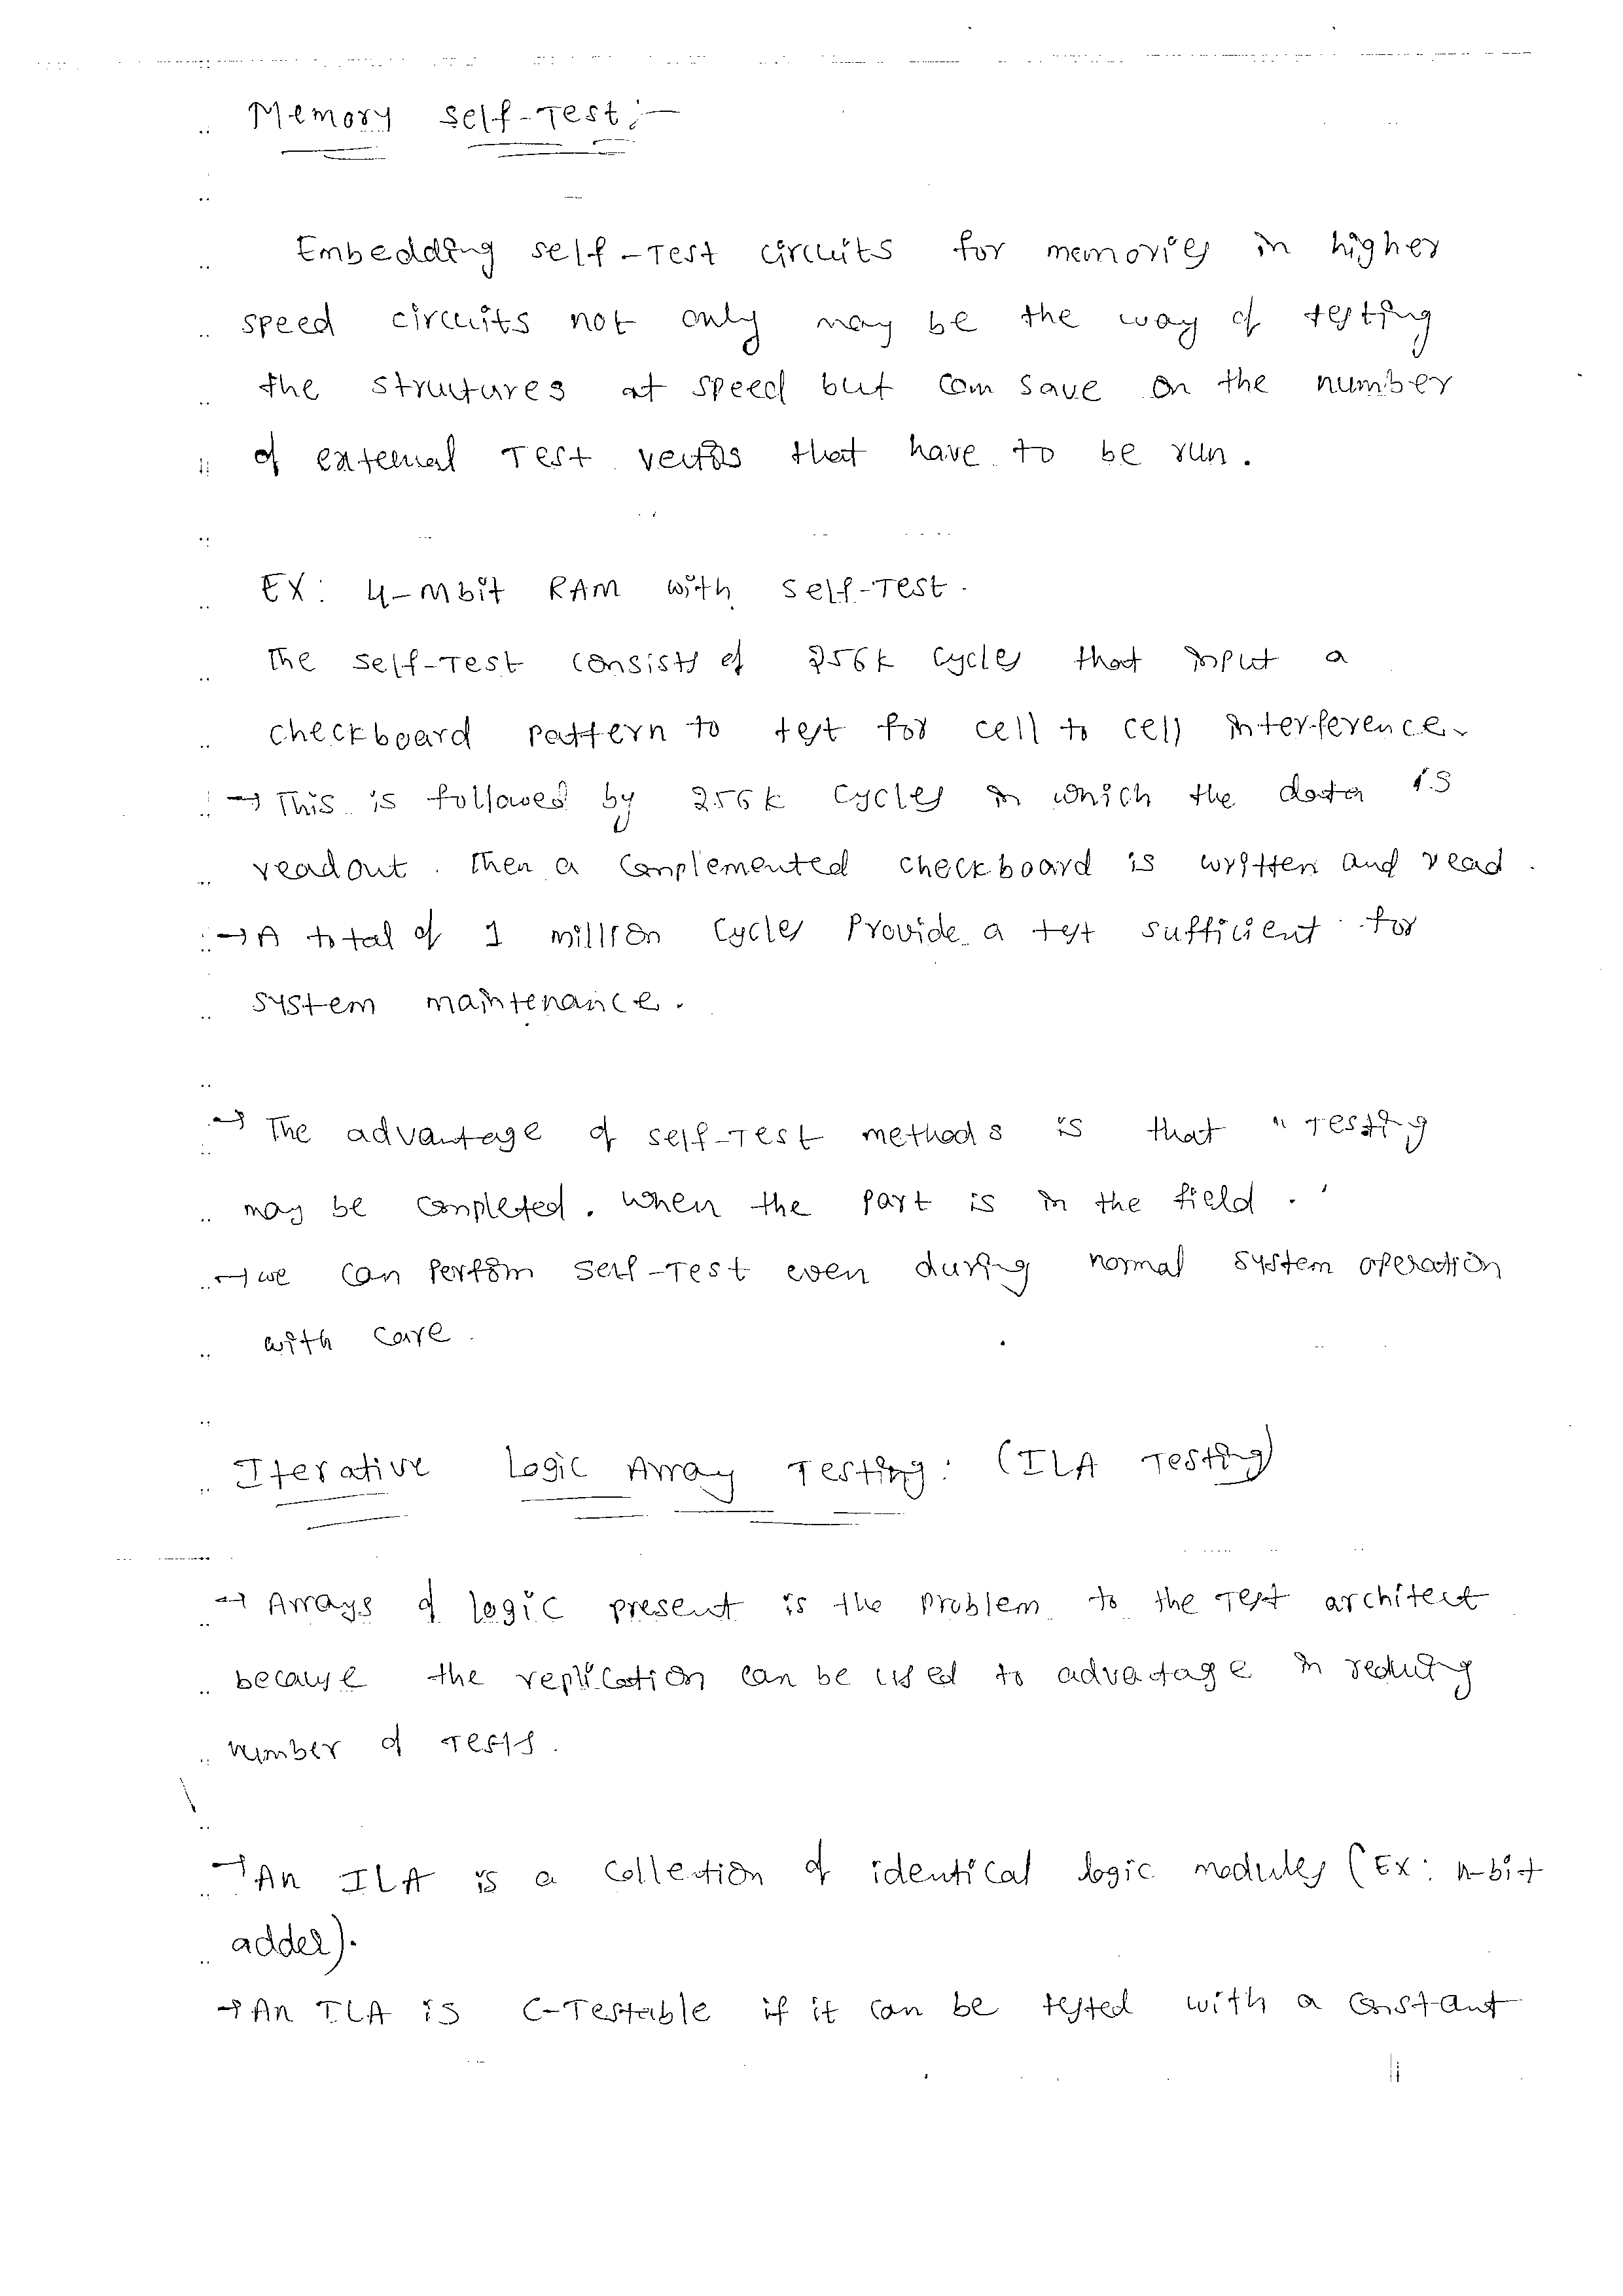 Memory Self-Test:-
Embedding self-Test circuits for memories in higher
speed circuits not only may be the way of testing
the structures at speed but can save on the number
of external Test vectors that have to be run.
EX: 4-Mbit RAM with self-Test.
The self-Test consists of 256k cycles that input a
checkboard pattern to test for cell to cell interference.
→ This is followed by 256k cycles in which the data is
readout. Then a complemented checkboard is written and read.
→ A total of 1 million cycles provide a test sufficient for
system maintenance.
→ The advantage of self-Test methods is that "Testing
may be completed. when the part is in the field."
→ we can perform self-Test even during normal system operation
with care.
Iterative Logic Array Testing: (ILA Testing)
→ Arrays of logic present is the problem to the Test architect
because the replication can be used to advatage in reducing
number of Tests.
→ An ILA is a collection of identical logic modules (Ex: n-bit
adder).
→ An ILA is C-Testable if it can be tested with a constant